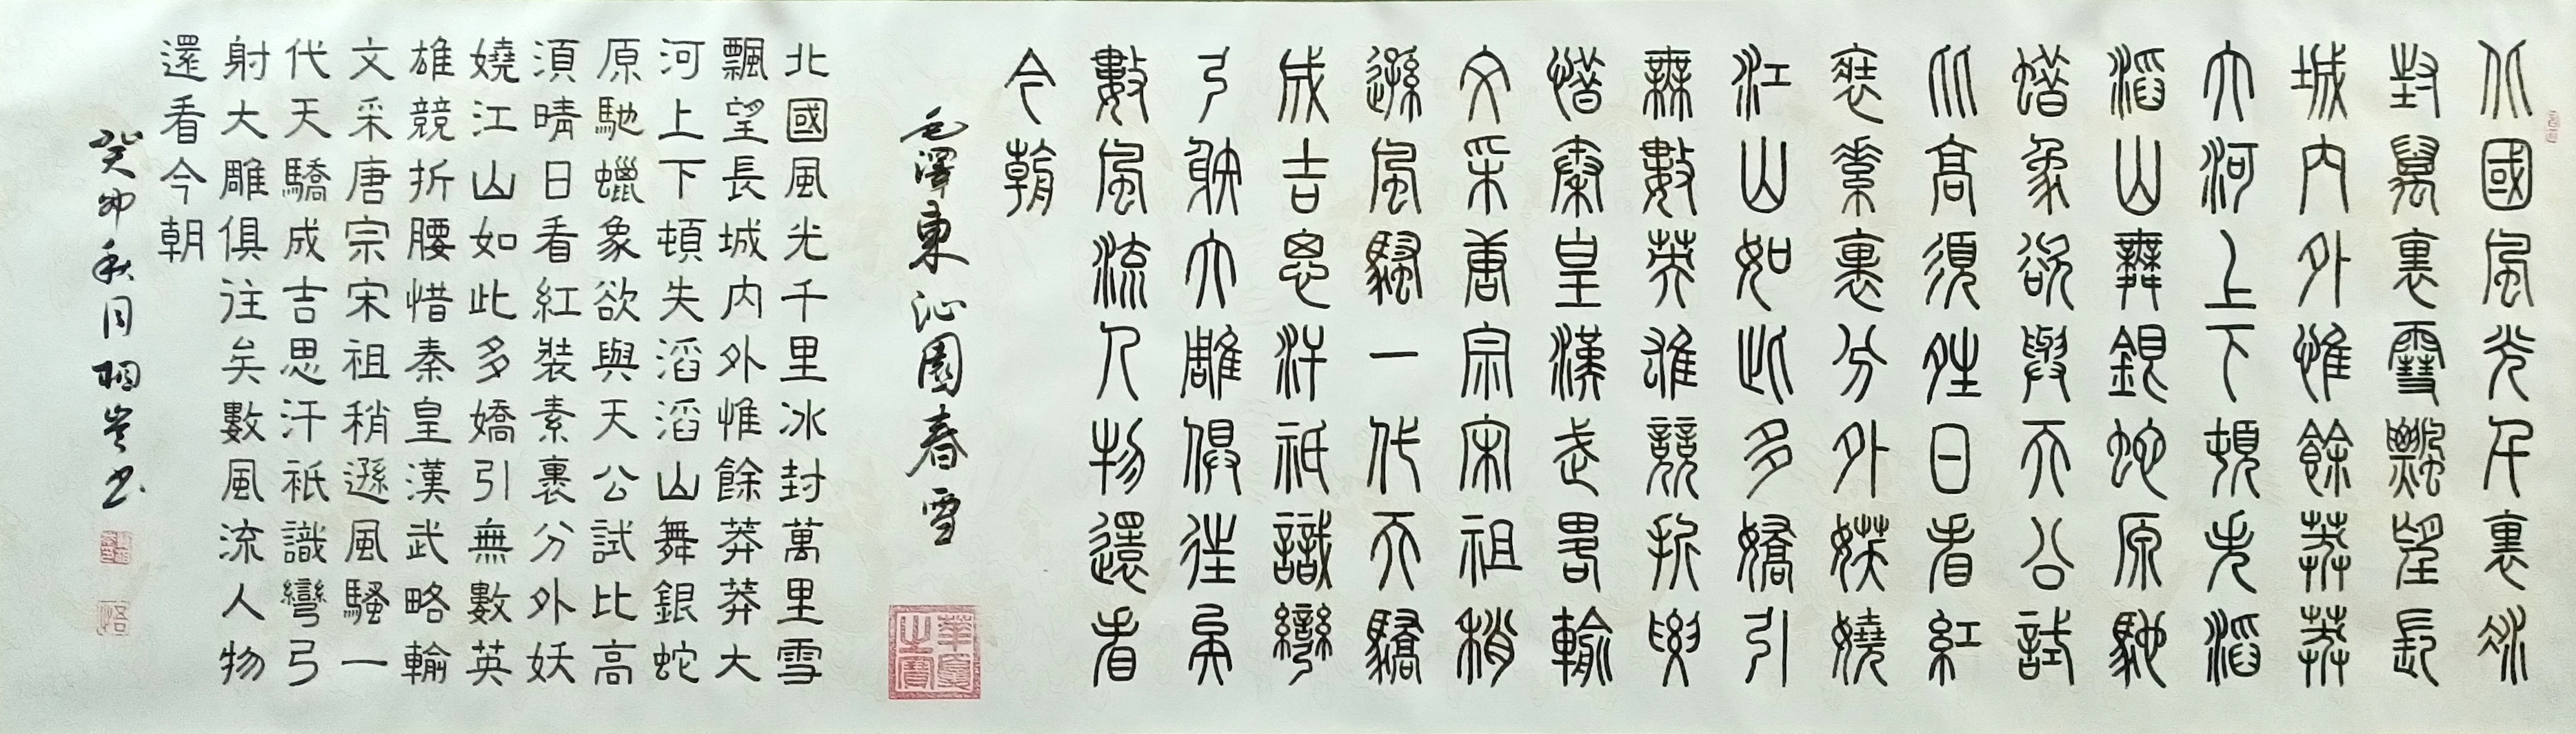 北國風光千裏冰
封萬裏雪飄望長
城内外惟餘莽莽
大河上下頓失滔
滔山舞銀蛇原馳
蠟象欲與天公試
比高須晴日看紅
裝素裹分外妖嬈
江山如此多嬌引
無數英雄競折腰
惜秦皇漢武略輸
文采唐宗宋祖稍
遜風騷一代天驕
成吉思汗祇識彎
弓射大雕俱往矣
數風流人物還看
今朝
毛澤東沁園春雪
華夏之寶
北國風光千里冰封萬里雪
飄望長城内外惟餘莽莽大
河上下頓失滔滔山舞銀蛇
原馳蠟象欲與天公試比高
須晴日看紅裝素裹分外妖
嬈江山如此多嬌引無數英
雄競折腰惜秦皇漢武略輸
文采唐宗宋祖稍遜風騷一
代天驕成吉思汗祇識彎弓
射大雕俱往矣數風流人物
還看今朝
癸卯秋月桐书